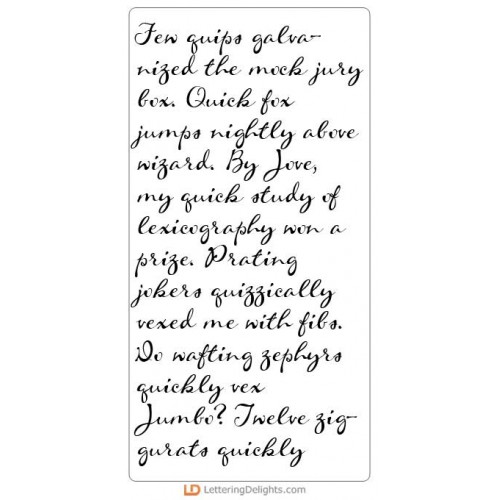 Few quips galva-
nized the mock jury
box. Quick fox
jumps nightly above
wizard. By Jove,
my quick study of
lexicography won a
prize. Prating
jokers quizzically
vexed me with fibs.
Do wafting zephyrs
quickly vex
Jumbo? Twelve zig-
gurats quickly
LD LetteringDelights.com